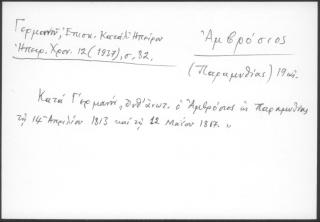 Γερμανοῦ, Ἐπισκ. Κατάλ. Ἠπείρου
Ἠπειρ. Χρον. 12 (1937), σ. 32.
Ἀμβρόσιος
(Παραμυθίας) 19 αι.
Κατὰ Γερμανὸ, ὁ Ἀμβρόσιος Παραμυθίας
τῇ 14 Ἀπριλίου 1813 καὶ τῇ 12 Μαΐου